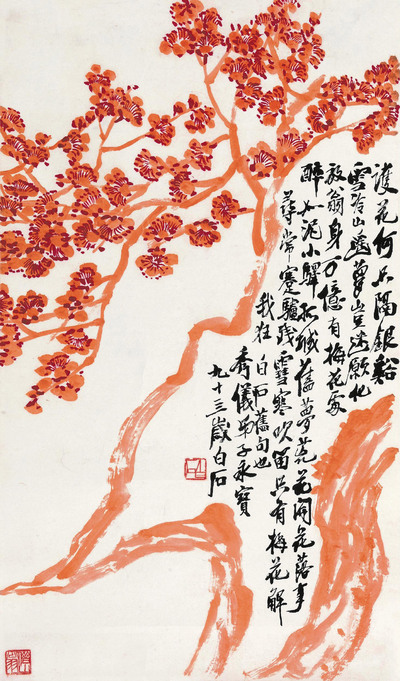 護花何只隔銀谿
雪冷山遙夢豈迷願化
放翁身万億有梅花處
醉如泥小驛孤城舊夢荒花開花落事
尋常蹇驢殘雪寒吹笛只有梅花解
我狂 白石舊句也
秀儀弟子永寶
九十三歲白石